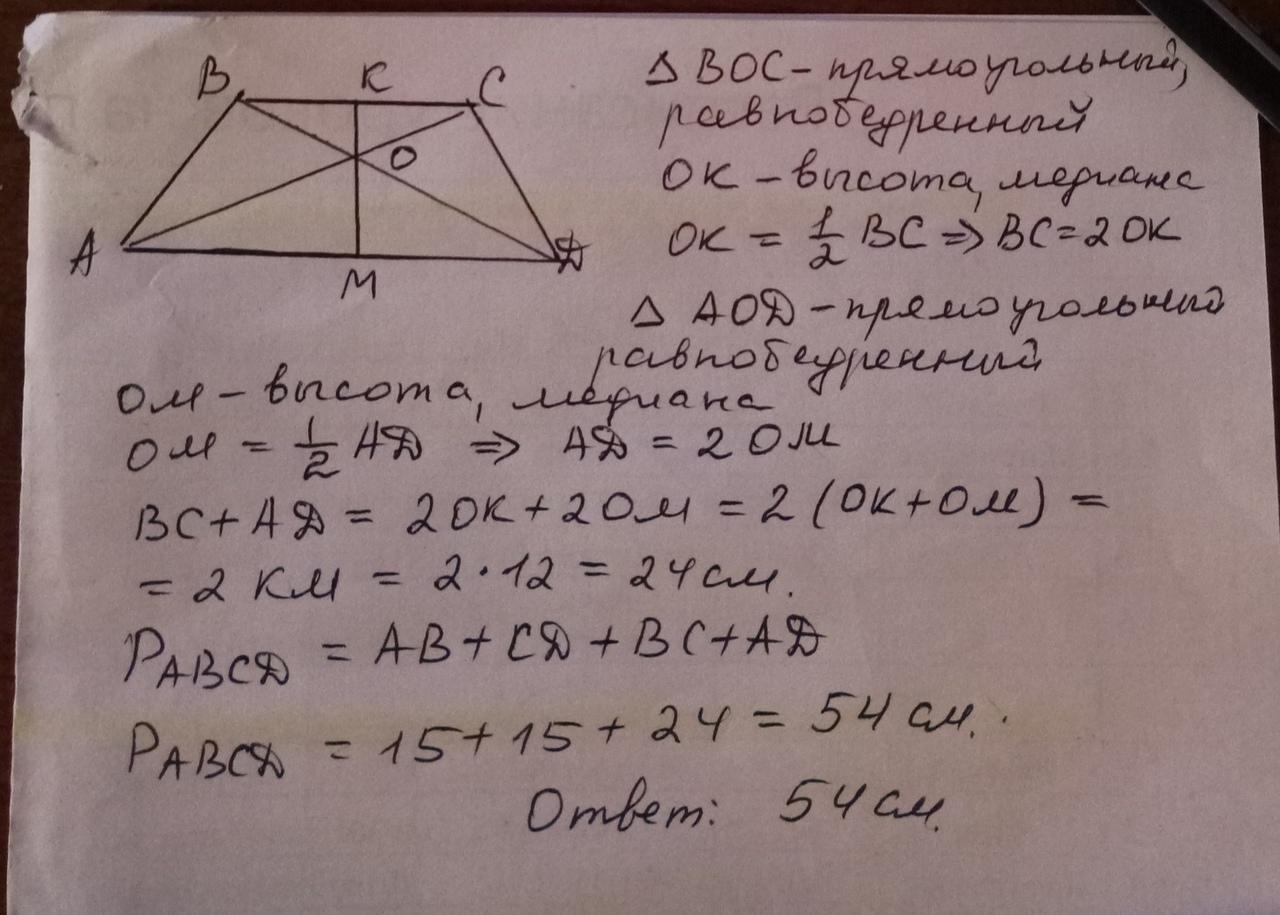 B K C
O
A M D
Δ BOC – прямоугольный,
равнобедренный
OK – высота, медиана
OK = 1/2 BC ⇒ BC = 2 OK
Δ AOD – прямоугольный
равнобедренный
OM – высота, медиана
OM = 1/2 AD ⇒ AD = 2 OM
BC + AD = 2OK + 2OM = 2 (OK + OM) =
= 2 KM = 2 · 12 = 24 см.
P ABCD = AB + CD + BC + AD
P ABCD = 15 + 15 + 24 = 54 см.
Ответ: 54 см.